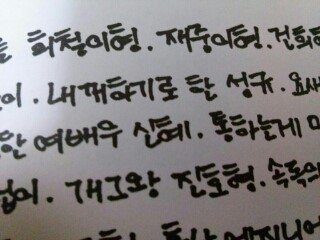 희철이형. 재중이형. 건희형
이. 내꺼하기로 한 성규. 요새
한 여배우 신혜. 통하는게
겁이. 개그왕 진호형. 속독의